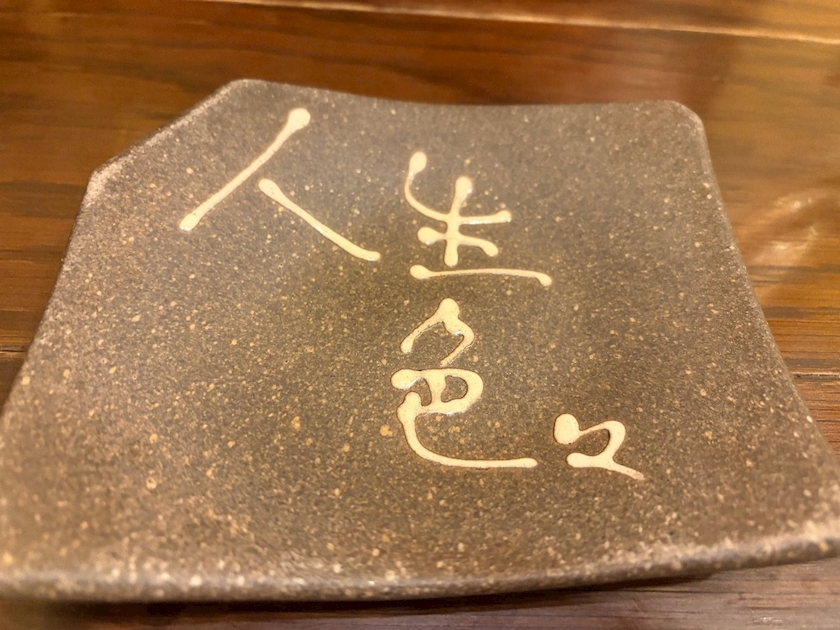 人生色々